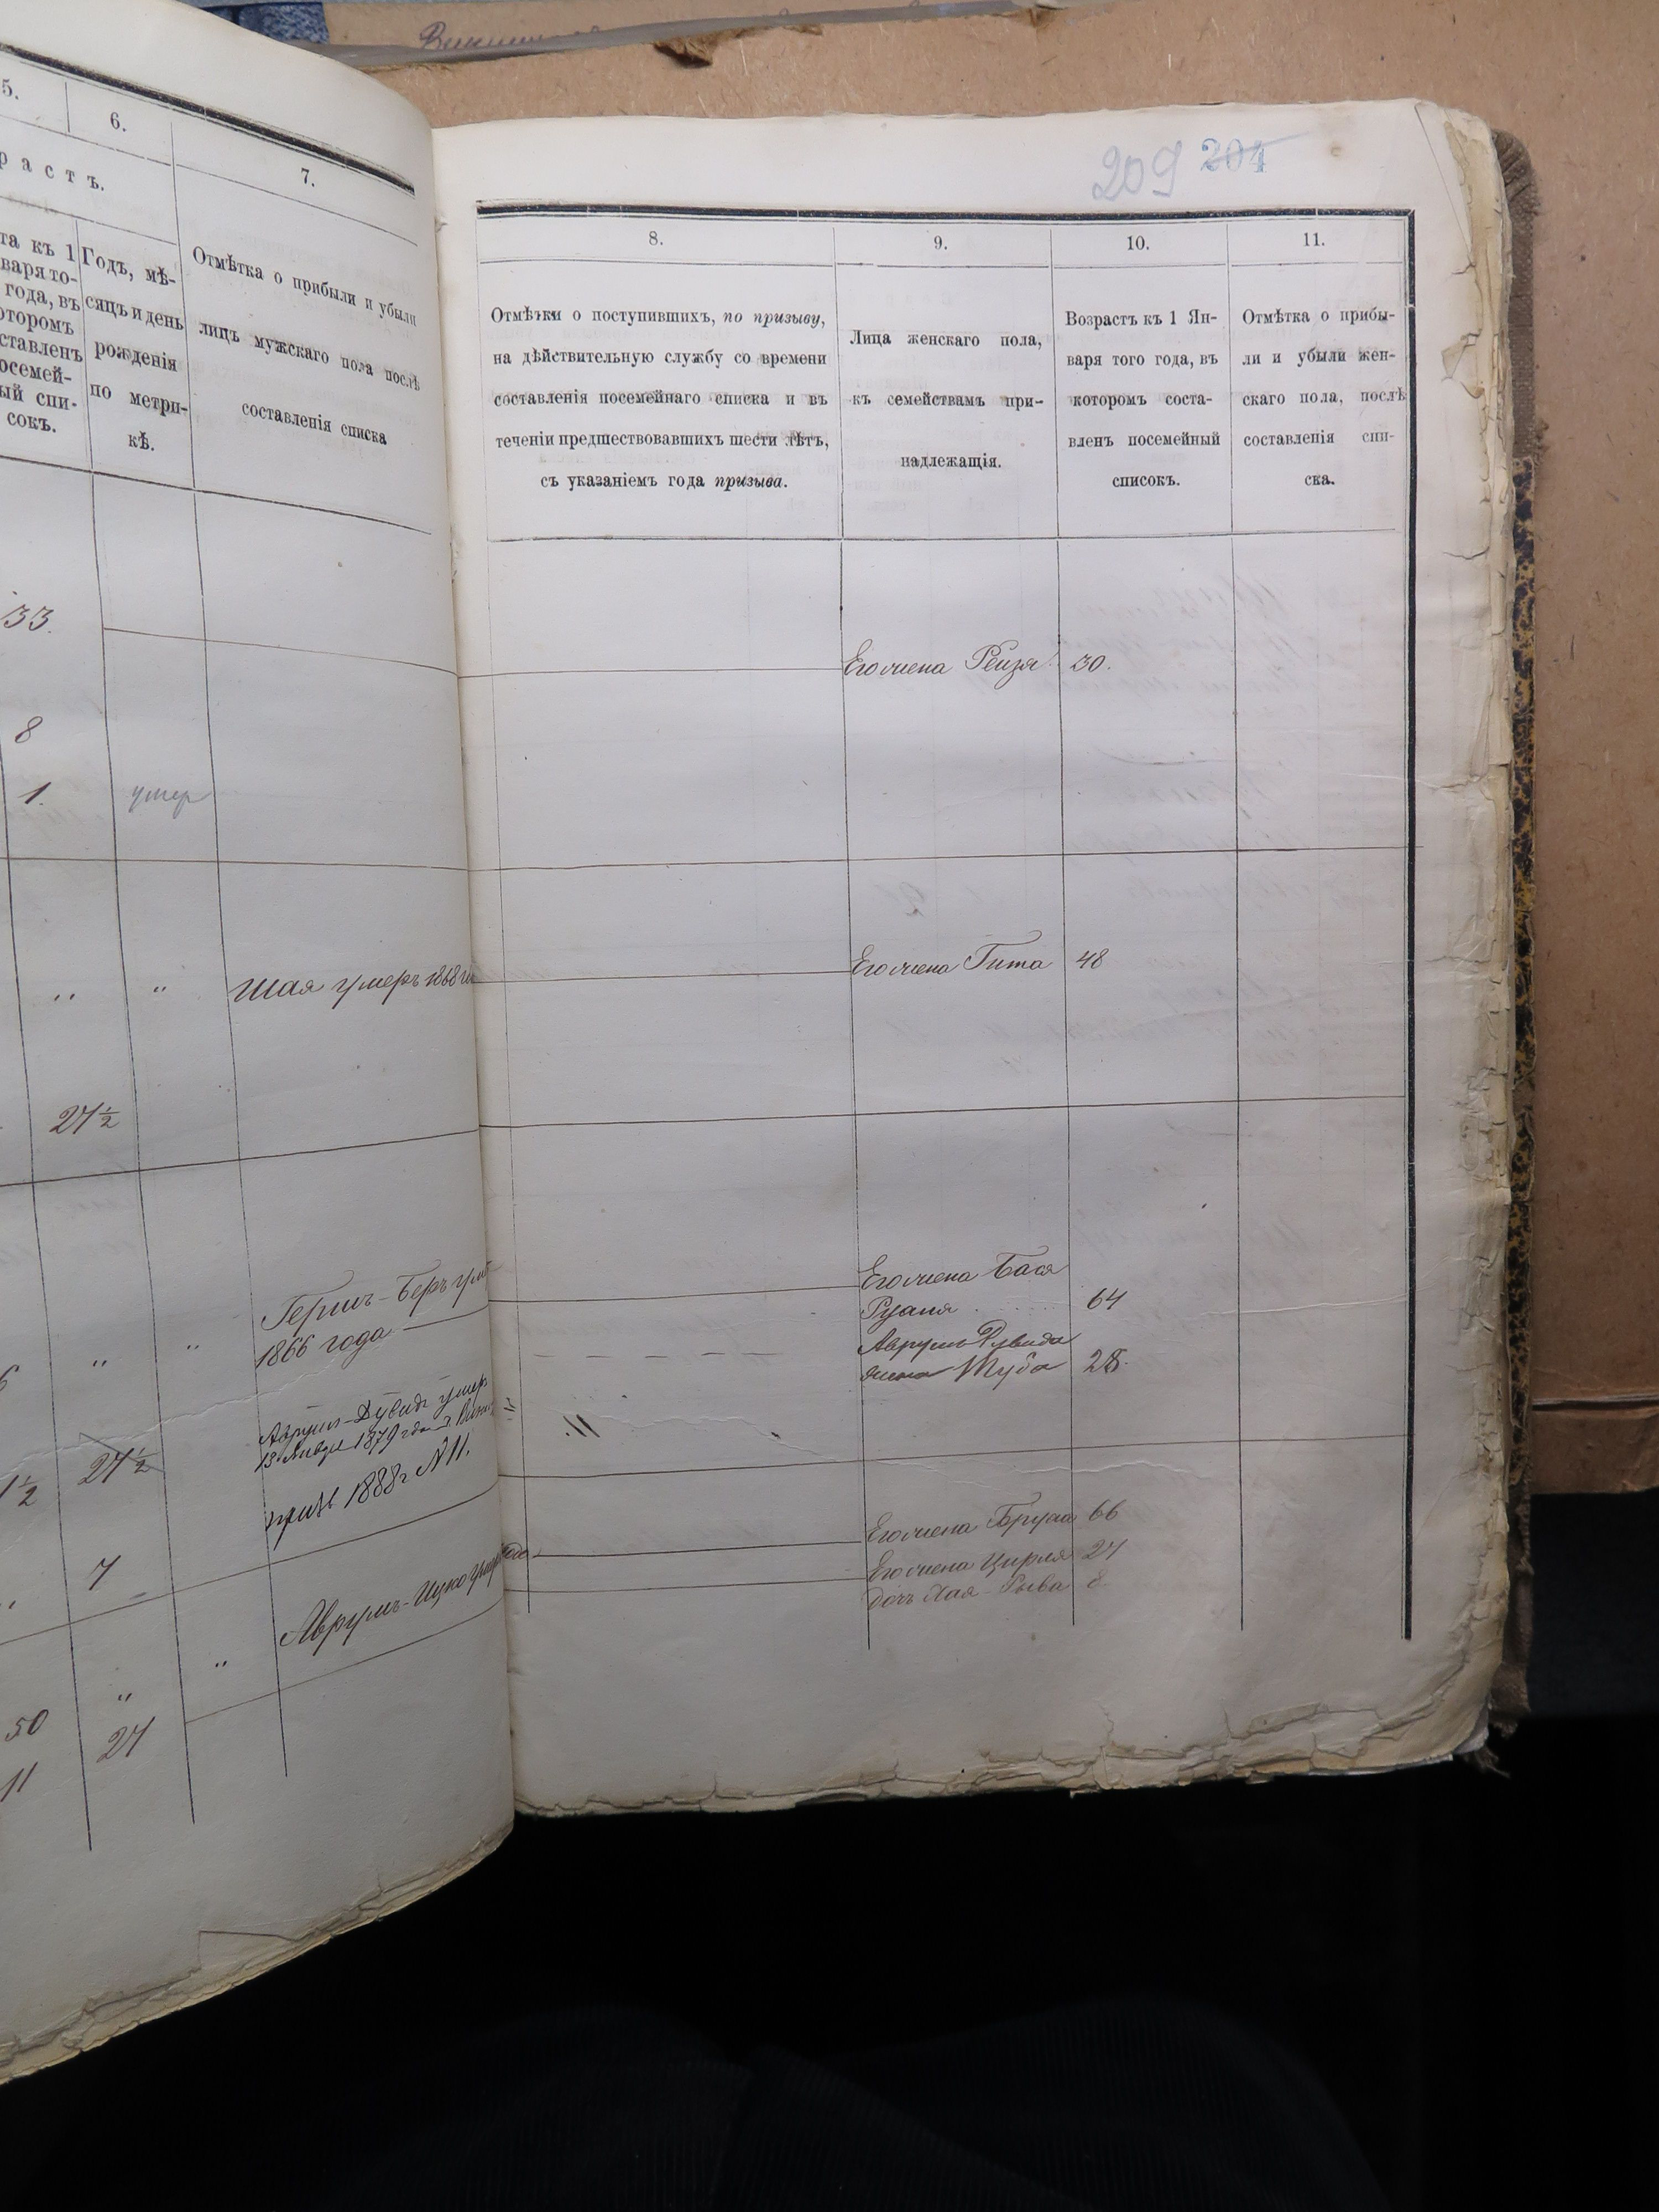 5.
6.
7.
растъ.
та къ 1
варя то-
года, въ
оторомъ
ставленъ
осемей-
ый спи-
сокъ.
Годъ, мѣ-
сяцъ и день
рожденія
по метри-
кѣ.
Отмѣтка о прибыли и убыли
лицъ мужскаго пола послѣ
составленія списка
33.
8
1.
умер
" " Шая умеръ 1868 г
27½
Гершъ-Беръ ум
1866 года
" "
Аврумъ-Дувидъ умер
13 Января 1879 года
1½ 27½
призв 1888 г N 11.
7
Аврумъ-Ицко умер
" "
50
27
11
209 204
8.
9.
10.
11.
Отмѣтки о поступившихъ, по призыву,
на дѣйствительную службу со времени
составленія посемейнаго списка и въ
теченіи предшествовавшихъ шести лѣтъ,
съ указаніемъ года призыва.
Лица женскаго пола,
къ семействамъ при-
надлежащія.
Возрастъ къ 1 Ян-
варя того года, въ
которомъ соста-
вленъ посемейный
списокъ.
Отмѣтка о прибы-
ли и убыли жен-
скаго пола, послѣ
составленія спи-
ска.
Его жена Рейзя 30.
Его жена Гита 48
Его жена Бася
Руаня 64
Аврумъ Дувида
жена Туба 28.
Его жена Бруха 66
Его жена Цирля 27
дочь Хая-Рыва 8.